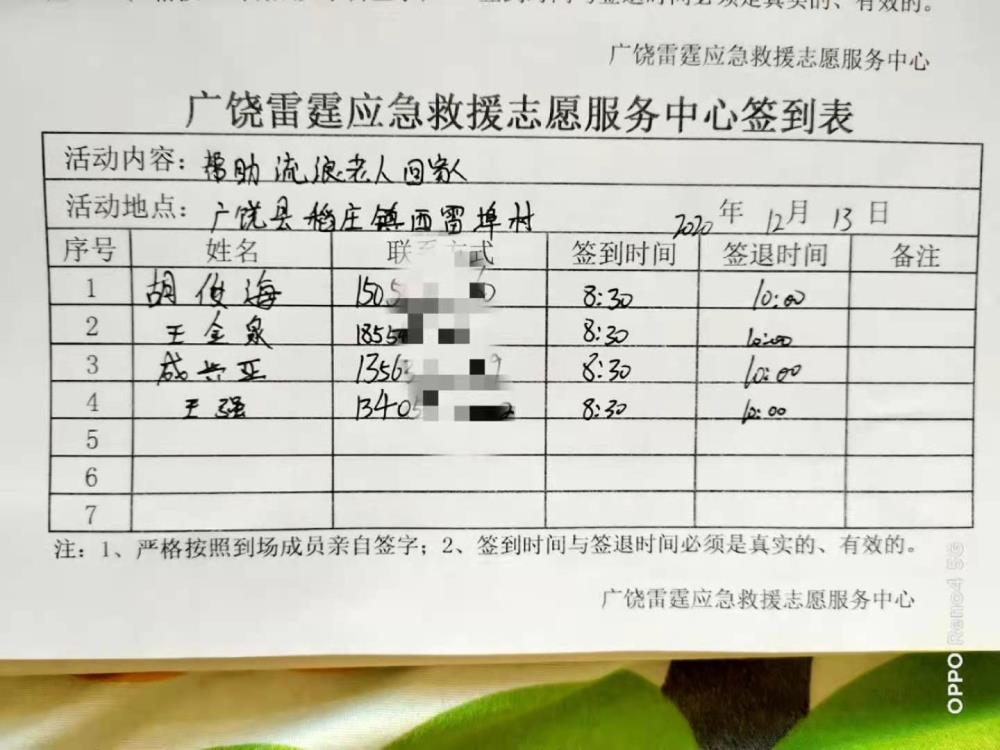 签到时间与签退时间必须是真实的、有效的。
广饶雷霆应急救援志愿服务中心
广饶雷霆应急救援志愿服务中心签到表
活动内容：帮助流浪老人回家
活动地点：广饶县稻庄镇西雷埠村 2020年12月13日
序号 姓名 联系方式 签到时间 签退时间 备注
1 胡俊海 150 8:30 10:00
2 王金泉 185 8:30 10:00
3 成兴亚 1356 9 8:30 10:00
4 王强 1340 2 8:30 10:00
5
6
7
注：1、严格按照到场成员亲自签字；2、签到时间与签退时间必须是真实的、有效的。
广饶雷霆应急救援志愿服务中心
OPPO Reno4 5G